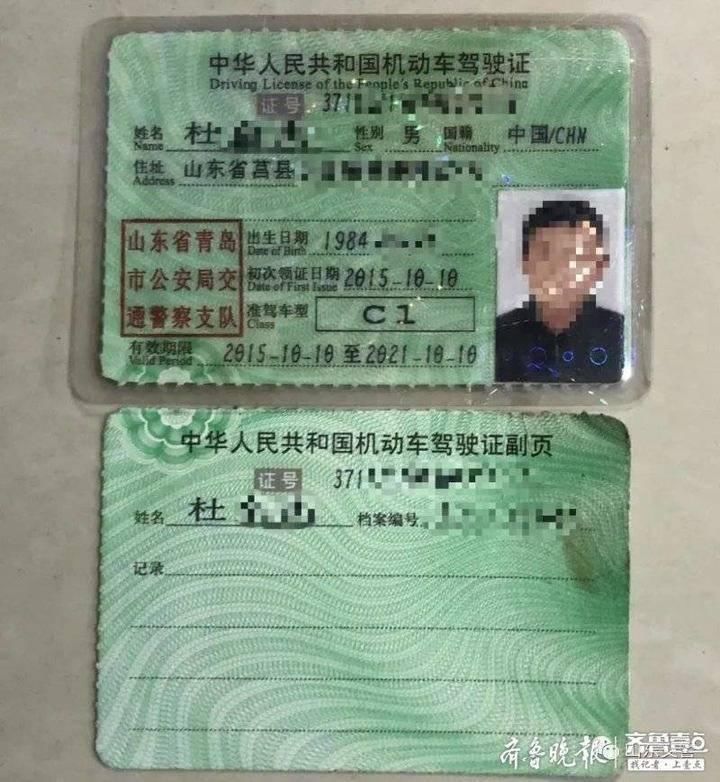 中华人民共和国机动车驾驶证
Driving License of the People's Republic of China
证号 371
姓名 杜 性别 男 国籍 中国/CHN
Name Sex Nationality
住址 山东省莒县
Address
山东省青岛
市公安局交
通警察支队
出生日期 1984
Date of Birth
初次领证日期 2015-10-10
Date of First Issue
准驾车型 C1
Class
有效期限 2015-10-10 至 2021-10-10
Valid Period
中华人民共和国机动车驾驶证副页
证号 371
姓名 杜 档案编号
记录
齐鲁晚报
齐鲁壹点
找记者·上壹点